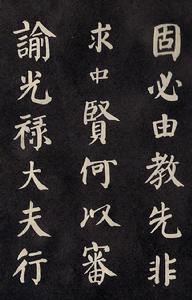 固必由教先非
求中賢何以審
諭光禄大夫行